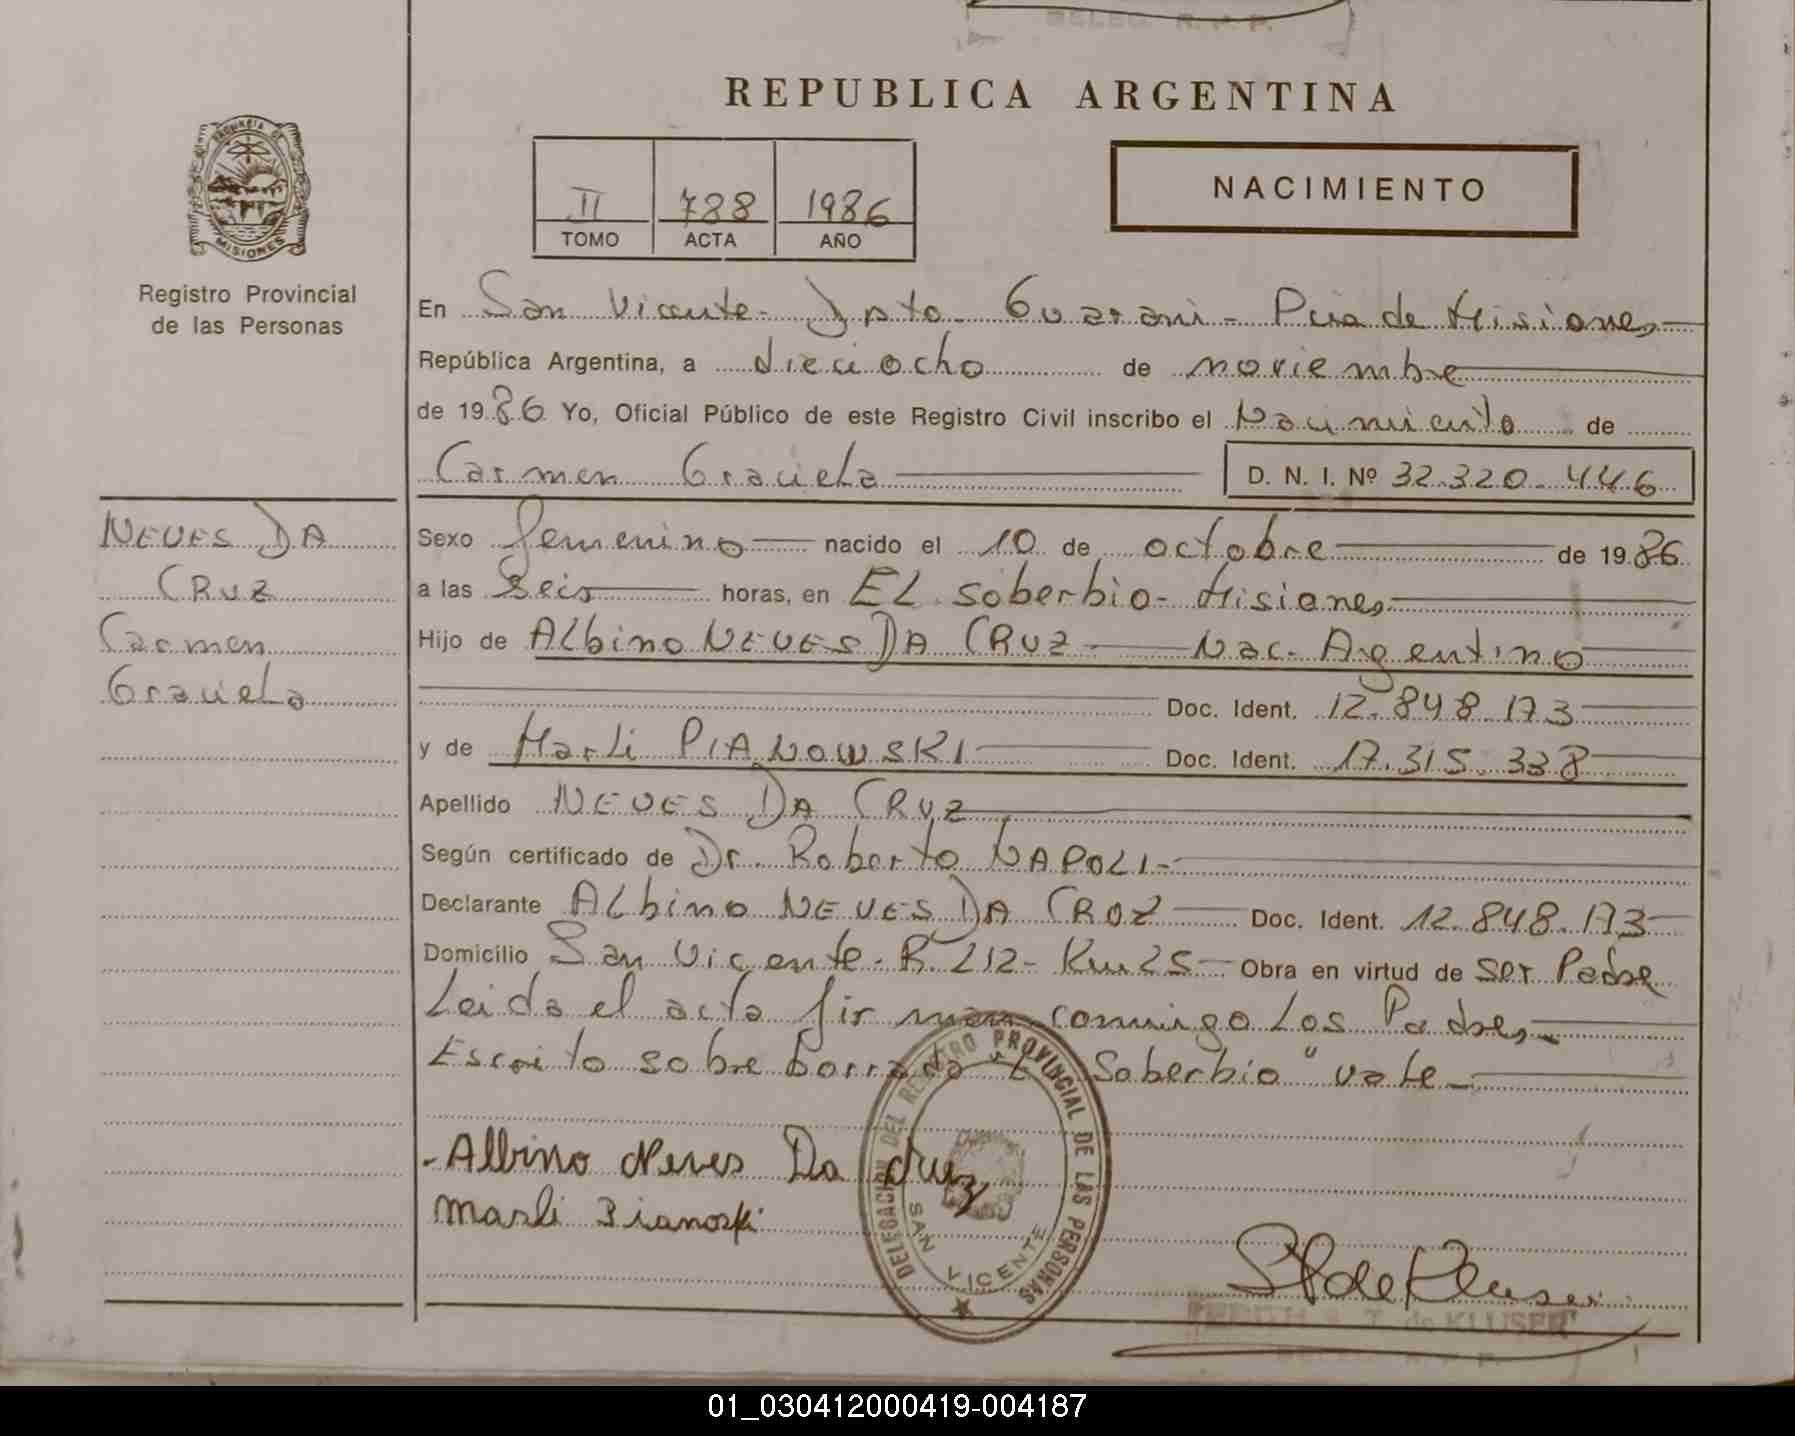 DELEG. R. P. P.
REPUBLICA ARGENTINA
PROVINCIA DE
MISIONES
Registro Provincial
de las Personas
II 788 1986
TOMO ACTA AÑO
NACIMIENTO
En San Vicente - Dpto. Guarani - Pcia de Misiones
República Argentina, a dieciocho de noviembre
de 1986 Yo, Oficial Público de este Registro Civil inscribo el Nacimiento de
Carmen Graciela D. N. I. Nº 32.320.446
NEVES DA
CRUZ
Carmen
Graciela
Sexo femenino nacido el 10 de octobre de 1986
a las Seis horas, en EL Soberbio - Misiones
Hijo de Albino NEVES DA CRUZ Nac. Argentino
Doc. Ident. 12.848.173
y de Marli PIANOWSKI Doc. Ident. 17.315.338
Apellido NEVES DA CRUZ
Según certificado de Dr. Roberto NAPOLI-
Declarante ALbino NEVES DA CROZ Doc. Ident. 12.848.173
Domicilio San Vicente - R. 212 - Km 25 Obra en virtud de ser Padre
Leida el acta firman conmigo Los Padres
Escrito sobre borrado "EL Soberbio" vale
-Albino Neves Da Cruz
Marli Pianoski
DELEGACION DEL REGISTRO PROVINCIAL DE LAS PERSONAS
SAN VICENTE
T. de KLUSER
01_030412000419-004187